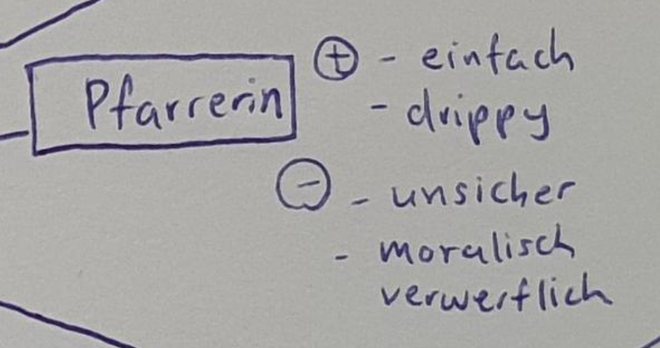 Pfarrerin
⊕ - einfach
- drippy
⊖ - unsicher
- moralisch
verwerflich